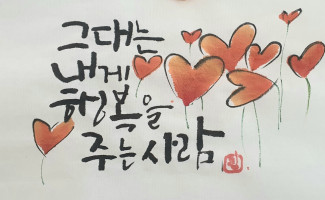 그대는
내게
행복을
주는 사람